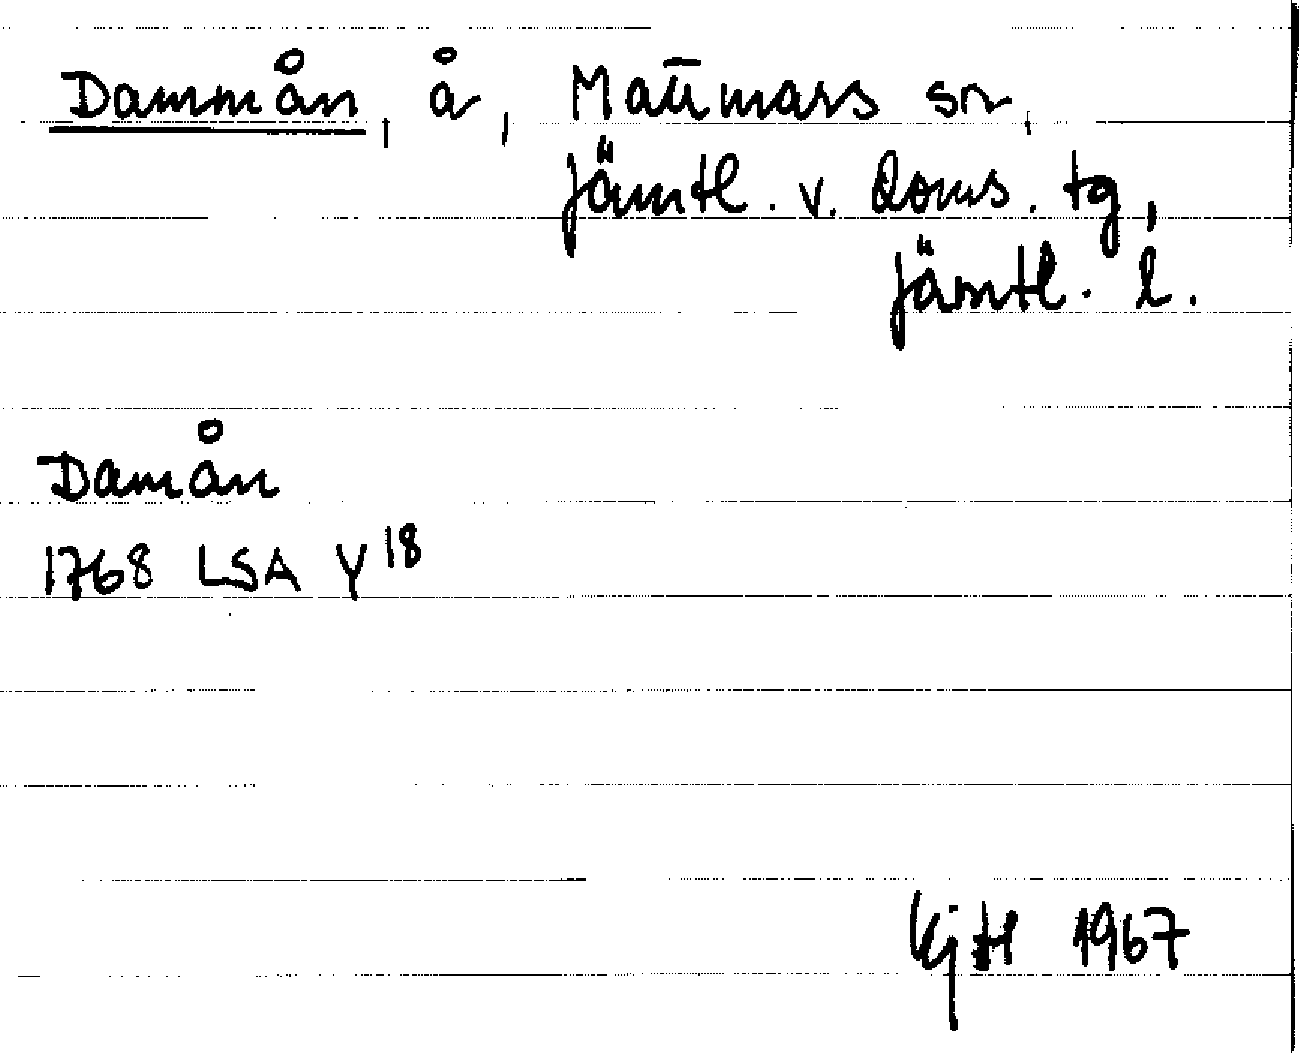 Dammån, å, Mattmars sn,
Jämtl. v. doms. tg,
Jämtl. l.
Damån
1768 LSA Y18
KjH 1967